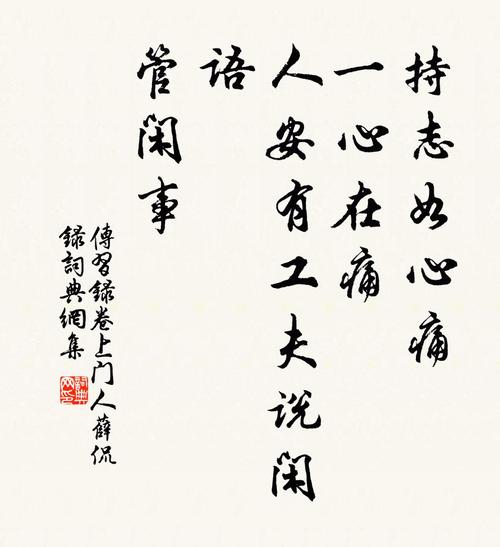 持志如心痛
一心在痛
人安有工夫说闲
语
管闲事
傳習録卷上门人薛侃
録詞典網集
詞典網印